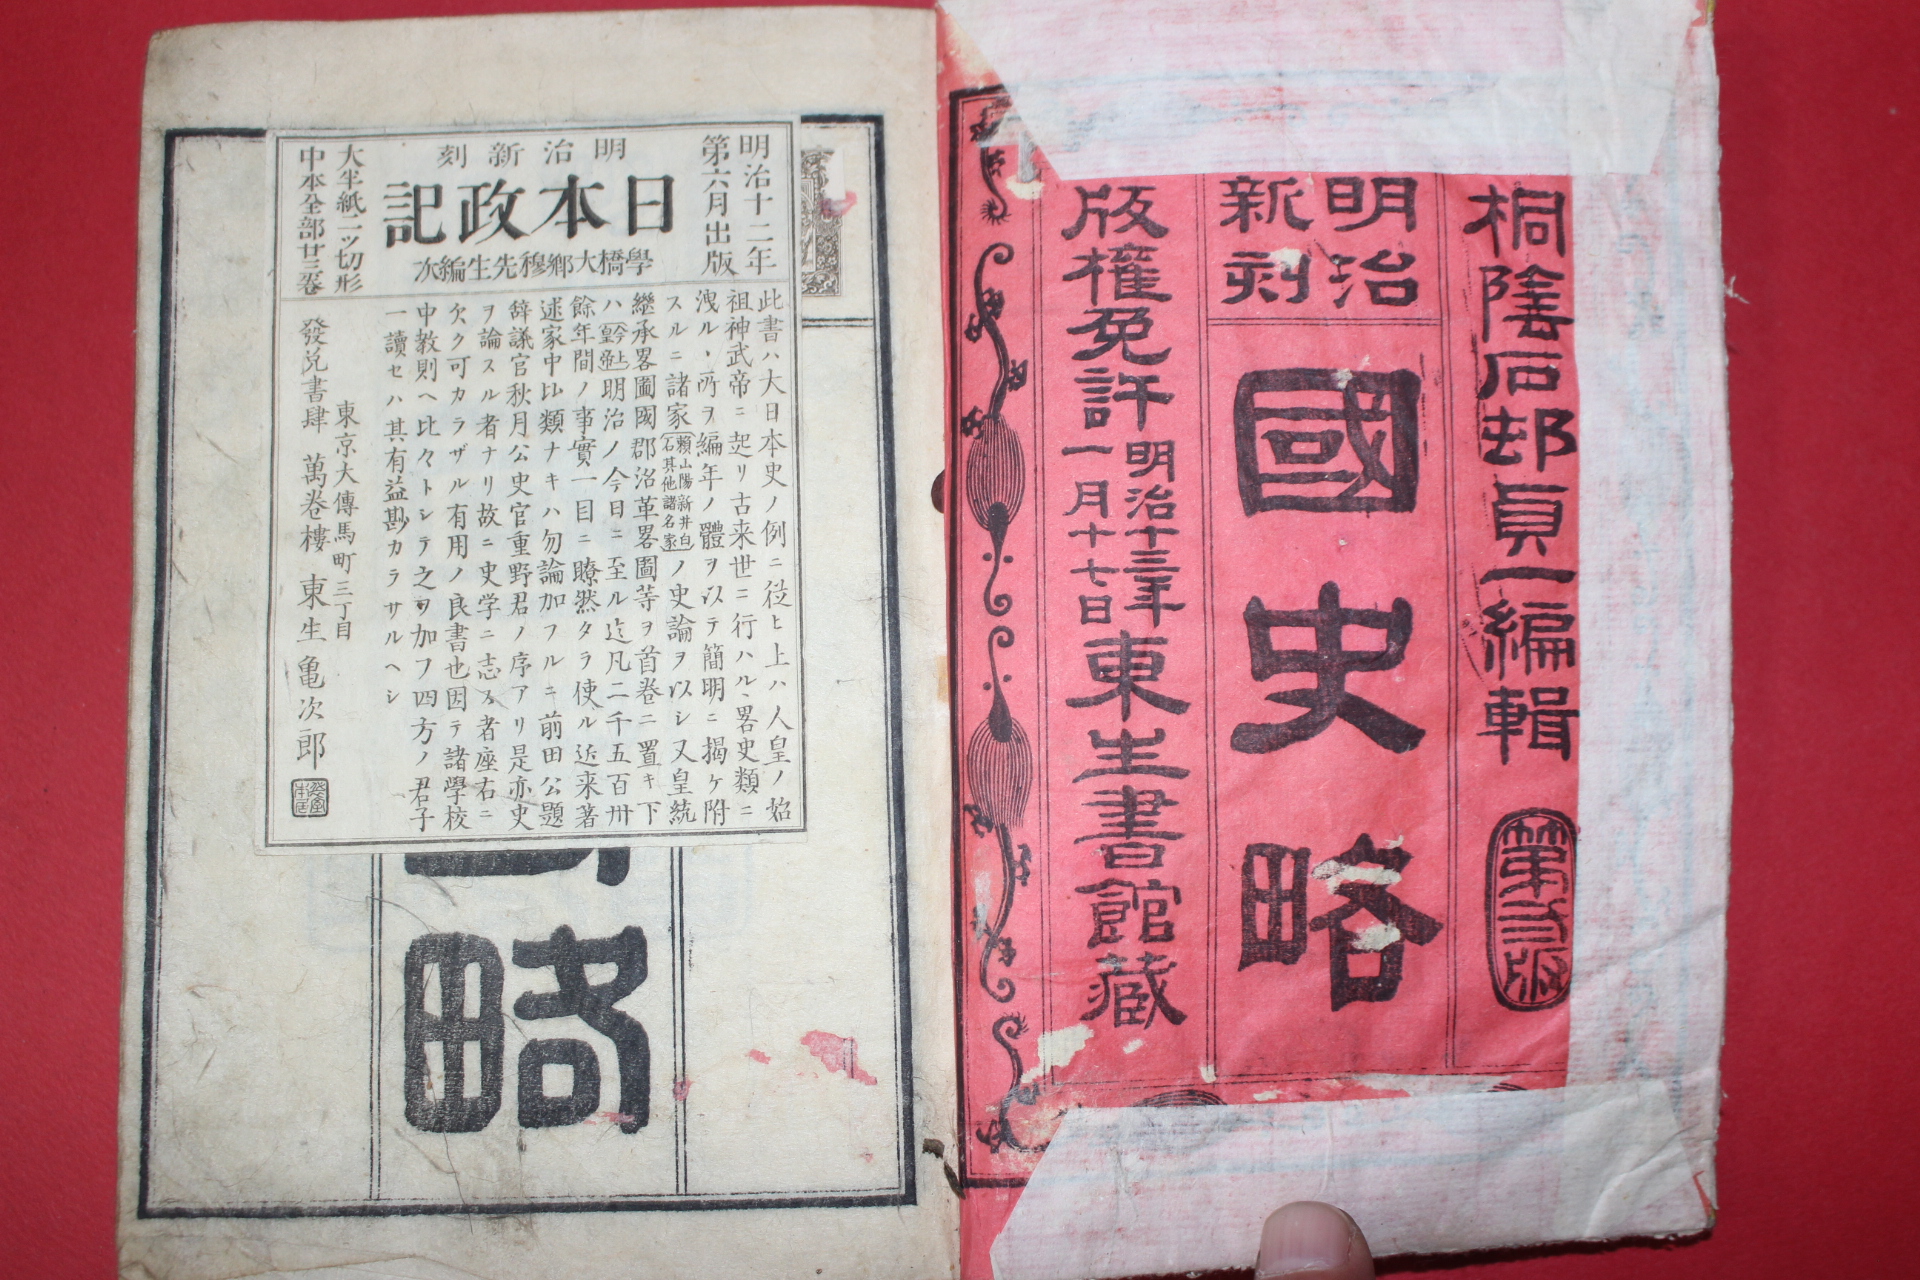 桐陰石邨貞一編輯
第二版
明治
新刻
國史略
版權免許
明治十三年
一月十七日
東生書館藏
明治十二年
第六月出版
明治新刻
日本政記
學橋大鄉穆先生編次
大半紙二ッ切形
中本全部廿三卷
此書ハ大日本史ノ例ニ從ヒ上ハ人皇ノ始
祖神武帝ニ起リ古来世ニ行ハル丶畧史類ニ
洩ル丶所ヲ編年ノ體ヲ以テ簡明ニ揭ケ附
スルニ諸家
賴山陽新井白
石其他諸名家
ノ史論ヲ以シ又皇統
繼承畧圖國郡沿革畧圖等ヲ首卷ニ置キ下
ハ
今上
至尊
明治ノ今日ニ至ル迄凡二千五百卅
餘年間ノ事實一目ニ瞭然タラ使ル近来著
述家中比類ナキハ勿論加フルニ前田公題
辞議官秋月公史官重野君ノ序アリ是亦史
ヲ論スル者ナリ故ニ史学ニ志ス者座右ニ
欠ク可カラザル有用ノ良書也因テ諸學校
中教則ヘ比々トシテ之ヲ加フ四方ノ君子
一讀セハ其有益尠カラサルヘシ
東京大傳馬町三丁目
發兌書肆 萬卷樓 東生亀次郎
略